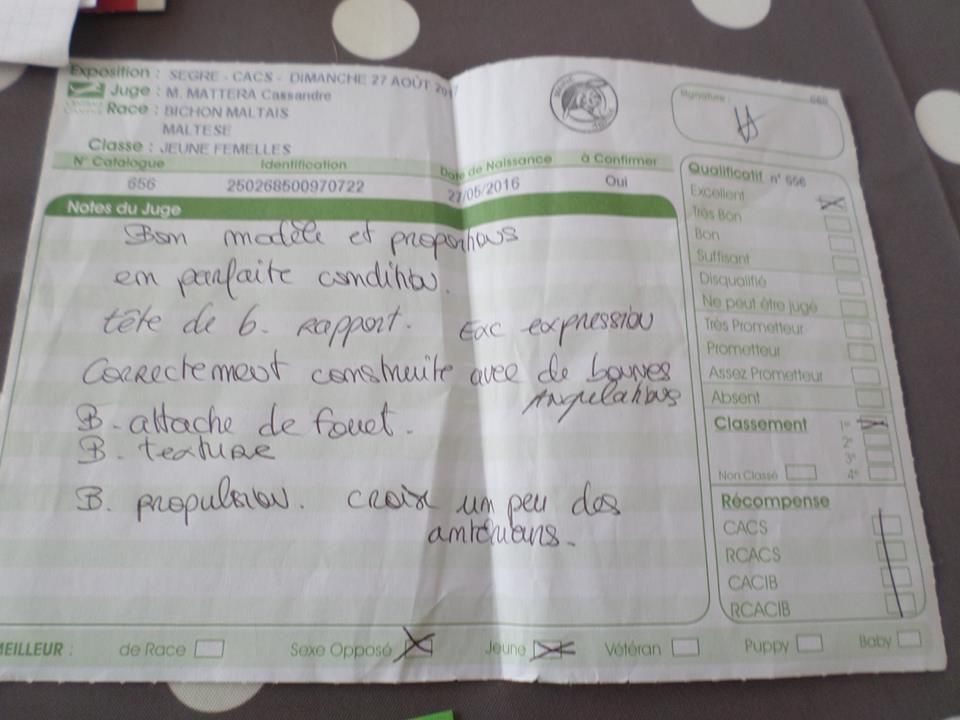 Exposition : SEGRE - CACS - DIMANCHE 27 AOÛT 2017
Juge : M. MATTERA Cassandre
Race : BICHON MALTAIS
MALTESE
Classe : JEUNE FEMELLES
N° Catalogue Identification Date de Naissance à Confirmer
656 250268500970722 27/05/2016 Oui
Notes du Juge
Bon modèle et proportions
en parfaite condition.
tête de b. rapport. Exc expression
Correctement construite avec de bonnes
Angulations
B. attache de fouet.
B. texture
B. propulsion. croise un peu des
antérieurs.
Signature : 656
Qualificatif n° 656
Excellent
Très Bon
Bon
Suffisant
Disqualifié
Ne peut être jugé
Très Prometteur
Prometteur
Assez Prometteur
Absent
Classement 1er
2e
3e
Non Classé 4e
Récompense
CACS
RCACS
CACIB
RCACIB
MEILLEUR : de Race Sexe Opposé Jeune Vétéran Puppy Baby